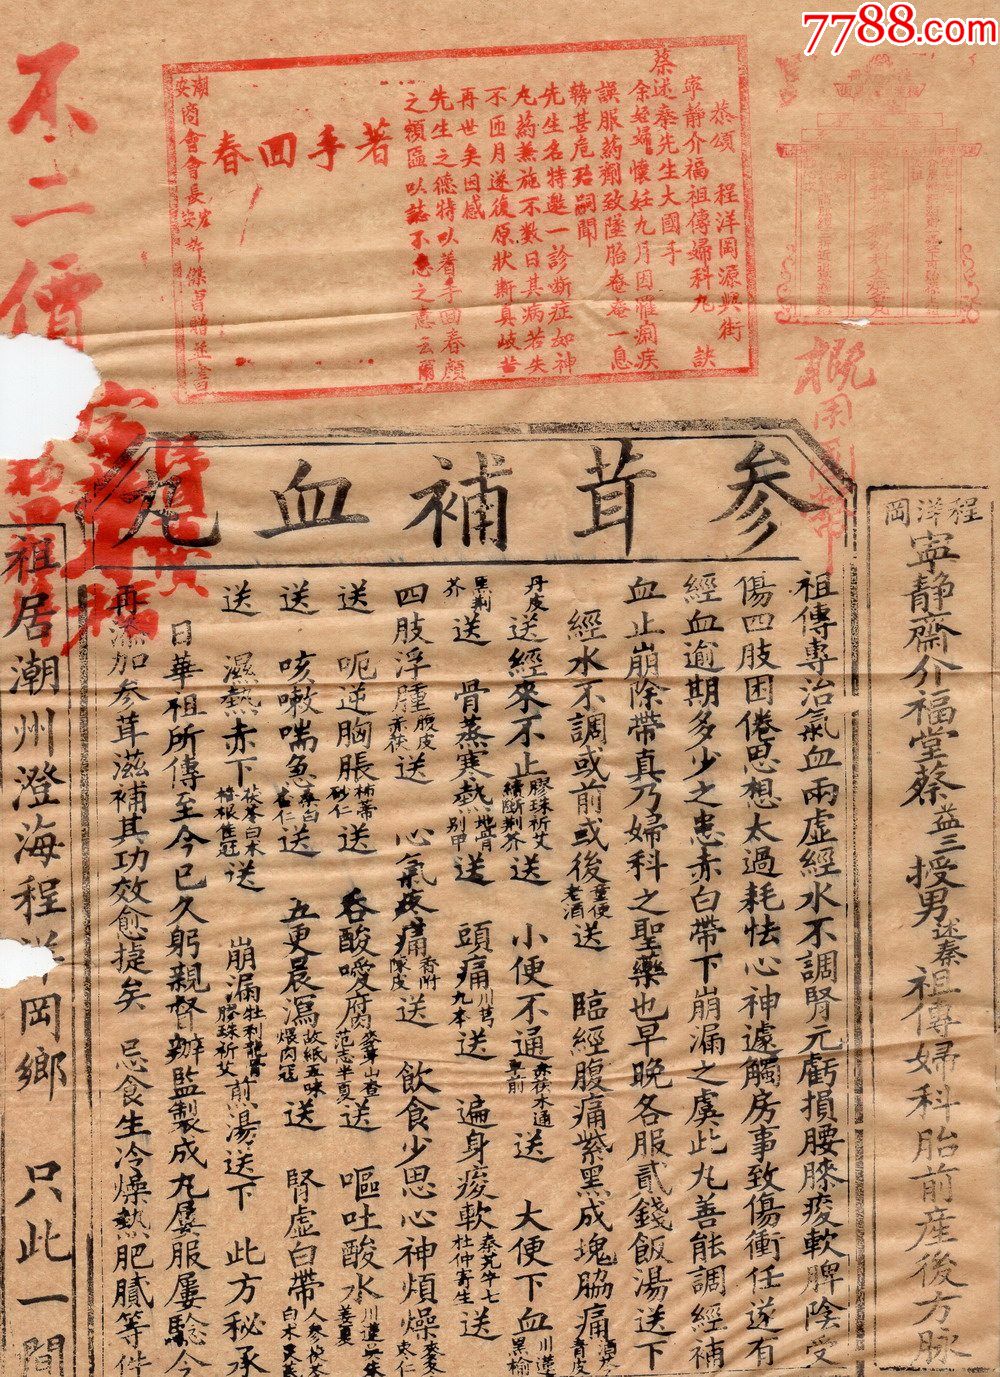 7788.com
不二價
恭頌　程洋岡源興街
寧靜介福祖傳婦科丸　訣
蔡述秦先生大國手
余姪婦懷妊九月因罹痢疾
誤服药劑致墜胎奄奄一息
勢甚危殆嗣聞
先生名特邀一診斷症如神
丸药兼施不数日其病若失
不匝月遂復原狀斯真岐黃
再世矣因感
先生之德特以着手回春顏
之額匾以誌不忘之意云爾
著手回春
潮安商會會長
概用國幣
参茸補血丸
程洋岡
寧靜齋介福堂蔡益三授男述秦　祖傳婦科胎前産後方脉
祖傳專治氣血兩虛經水不調腎元虧損腰膝痠軟脾陰受
傷四肢困倦思想太過耗怯心神遽觸房事致傷衝任遂有
經血逾期多少之患赤白帶下崩漏之虞此丸善能調經補
血止崩除帶真乃婦科之聖藥也早晚各服貳錢飯湯送下
經水不調或前或後童便老酒送　臨經腹痛紫黑成塊脇痛青皮
丹皮送經來不止膠珠祈艾續斷荆芥送　小便不通赤茯木通車前送　大便下血川連黑榆
黑荆芥送　骨蒸寒熱地骨别甲送　頭痛川芎九本送　遍身痠軟秦艽牛七杜仲寄生送
四肢浮腫腹皮赤茯送　心氣疼痛香附陳皮送　飲食少思心神煩燥麥冬枣仁
送　呃逆胸脹柿蒂砂仁送　吞酸噯腐麥芽山查范志半夏送　嘔吐酸水川連吳朱姜夏
送　咳嗽喘急桑白杏仁送　五更晨瀉故紙五味煨肉冠送　腎虛白帶人参茯苓白木
送　濕熱赤下茯苓白木樁根隹冠送　崩漏牡利龍骨膠珠祈艾煎湯送下　此方秘承
日華祖所傳至今已久躬親督辦監製成丸屢服屢驗今
再添加参茸滋補其功效愈捷矣　忌食生冷燥熱肥膩等件
祖居潮州澄海程洋岡鄉　只此一間